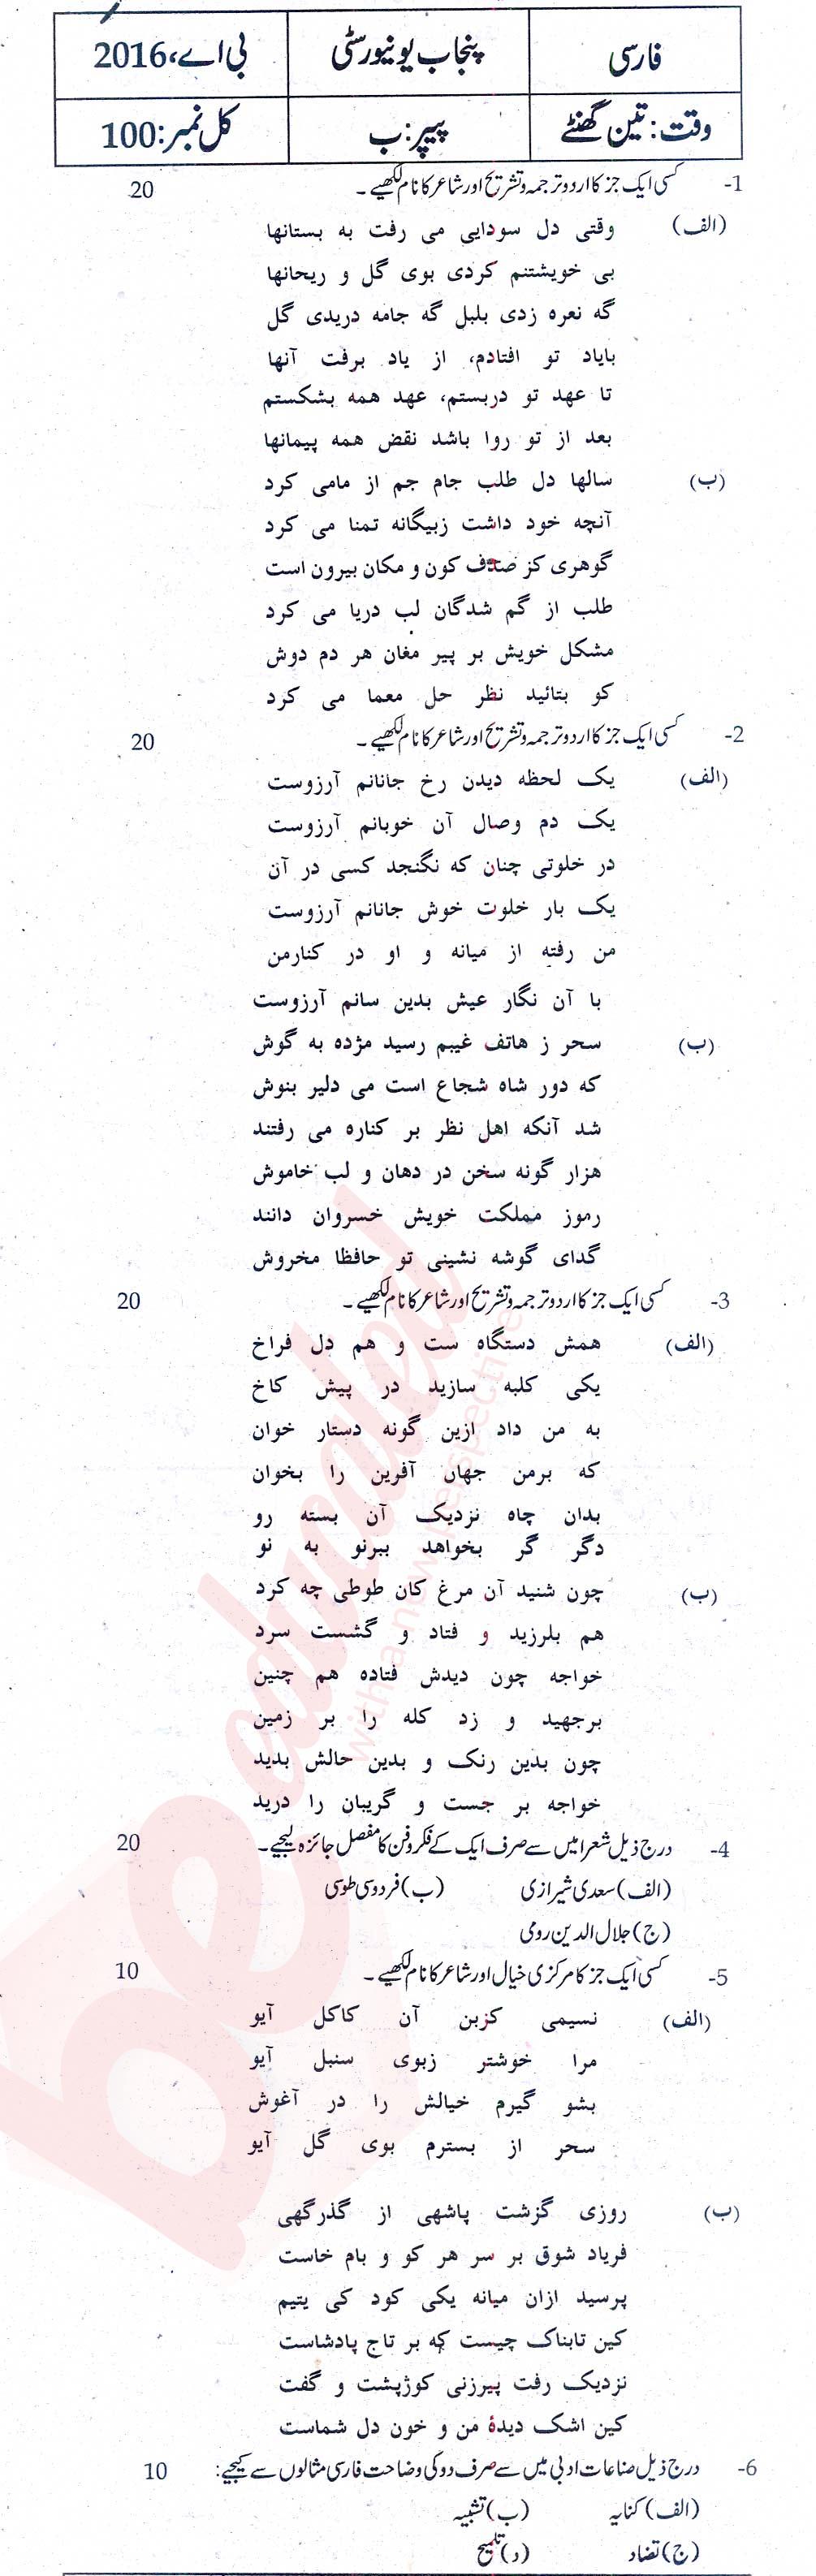 فارسی پنجاب یونیورسٹی بی اے، 2016
وقت: تین گھنٹے پیپر: ب کل نمبر: 100
1- کسی ایک جز کا اردو ترجمہ و تشریح اور شاعر کا نام لکھیے۔ 20
(الف) وقتی دل سودایی می رفت به بستانها
بی خویشتنم کردی بوی گل و ریحانها
گه نعره زدی بلبل گه جامه دریدی گل
بایاد تو افتادم، از یاد برفت آنها
تا عهد تو دربستم، عهد همه بشکستم
بعد از تو روا باشد نقض همه پیمانها
(ب) سالها دل طلب جام جم از مامی کرد
آنچه خود داشت زبیگانه تمنا می کرد
گوهری کز صدف کون و مکان بیرون است
طلب از گم شدگان لب دریا می کرد
مشکل خویش بر پیر مغان هر دم دوش
کو بتائید نظر حل معما می کرد
2- کسی ایک جز کا اردو ترجمہ و تشریح اور شاعر کا نام لکھیے۔ 20
(الف) یک لحظه دیدن رخ جانانم آرزوست
یک دم وصال آن خوبانم آرزوست
در خلوتی چنان که نگنجد کسی در آن
یک بار خلوت خوش جانانم آرزوست
من رفته از میانه و او در کنارمن
با آن نگار عیش بدین سانم آرزوست
(ب) سحر ز هاتف غیبم رسید مژده به گوش
که دور شاه شجاع است می دلیر بنوش
شد آنکه اهل نظر بر کناره می رفتند
هزار گونه سخن در دهان و لب خاموش
رموز مملکت خویش خسروان دانند
گدای گوشه نشینی تو حافظا مخروش
3- کسی ایک جز کا اردو ترجمہ و تشریح اور شاعر کا نام لکھیے۔ 20
(الف) همش دستگاه ست و هم دل فراخ
یکی کلبه سازید در پیش کاخ
به من داد ازین گونه دستار خوان
که برمن جهاں آفرین را بخوان
بدان چاه نزدیک آن بسته رو
دگر گر بخواهد ببرنو به نو
(ب) چون شنید آن مرغ کان طوطی چه کرد
هم بلرزید و فتاد و گشست سرد
خواجه چون دیدش فتاده هم چنین
برجهید و زد کله را بر زمین
چون بدین رنک و بدین حالش بدید
خواجه بر جست و گریبان را درید
4- درج ذیل شعرا میں سے صرف ایک کے فکر و فن کا مفصل جائزہ لیجیے۔ 20
(الف) سعدی شیرازی (ب) فردوسی طوسی
(ج) جلال الدین رومی
5- کسی ایک جز کا مرکزی خیال اور شاعر کا نام لکھیے۔ 10
(الف) نسیمی کزبن آن کاکل آیو
مرا خوشتر زبوی سنبل آیو
بشو گیرم خیالش را در آغوش
سحر از بسترم بوی گل آیو
(ب) روزی گزشت پاشهی از گذرگهی
فریاد شوق بر سر هر کو و بام خاست
پرسید ازان میانه یکی کود کی یتیم
کین تابناک چیست که بر تاج پادشاست
نزدیک رفت پیرزنی کوژپشت و گفت
کین اشک دیدهٔ من و خون دل شماست
6- درج ذیل صناعات ادبی میں سے صرف دو کی وضاحت فارسی مثالوں سے کیجیے: 10
(الف) کنایہ (ب) تشبیہ
(ج) تضاد (د) تلمیح
beeducated
with a new perspective